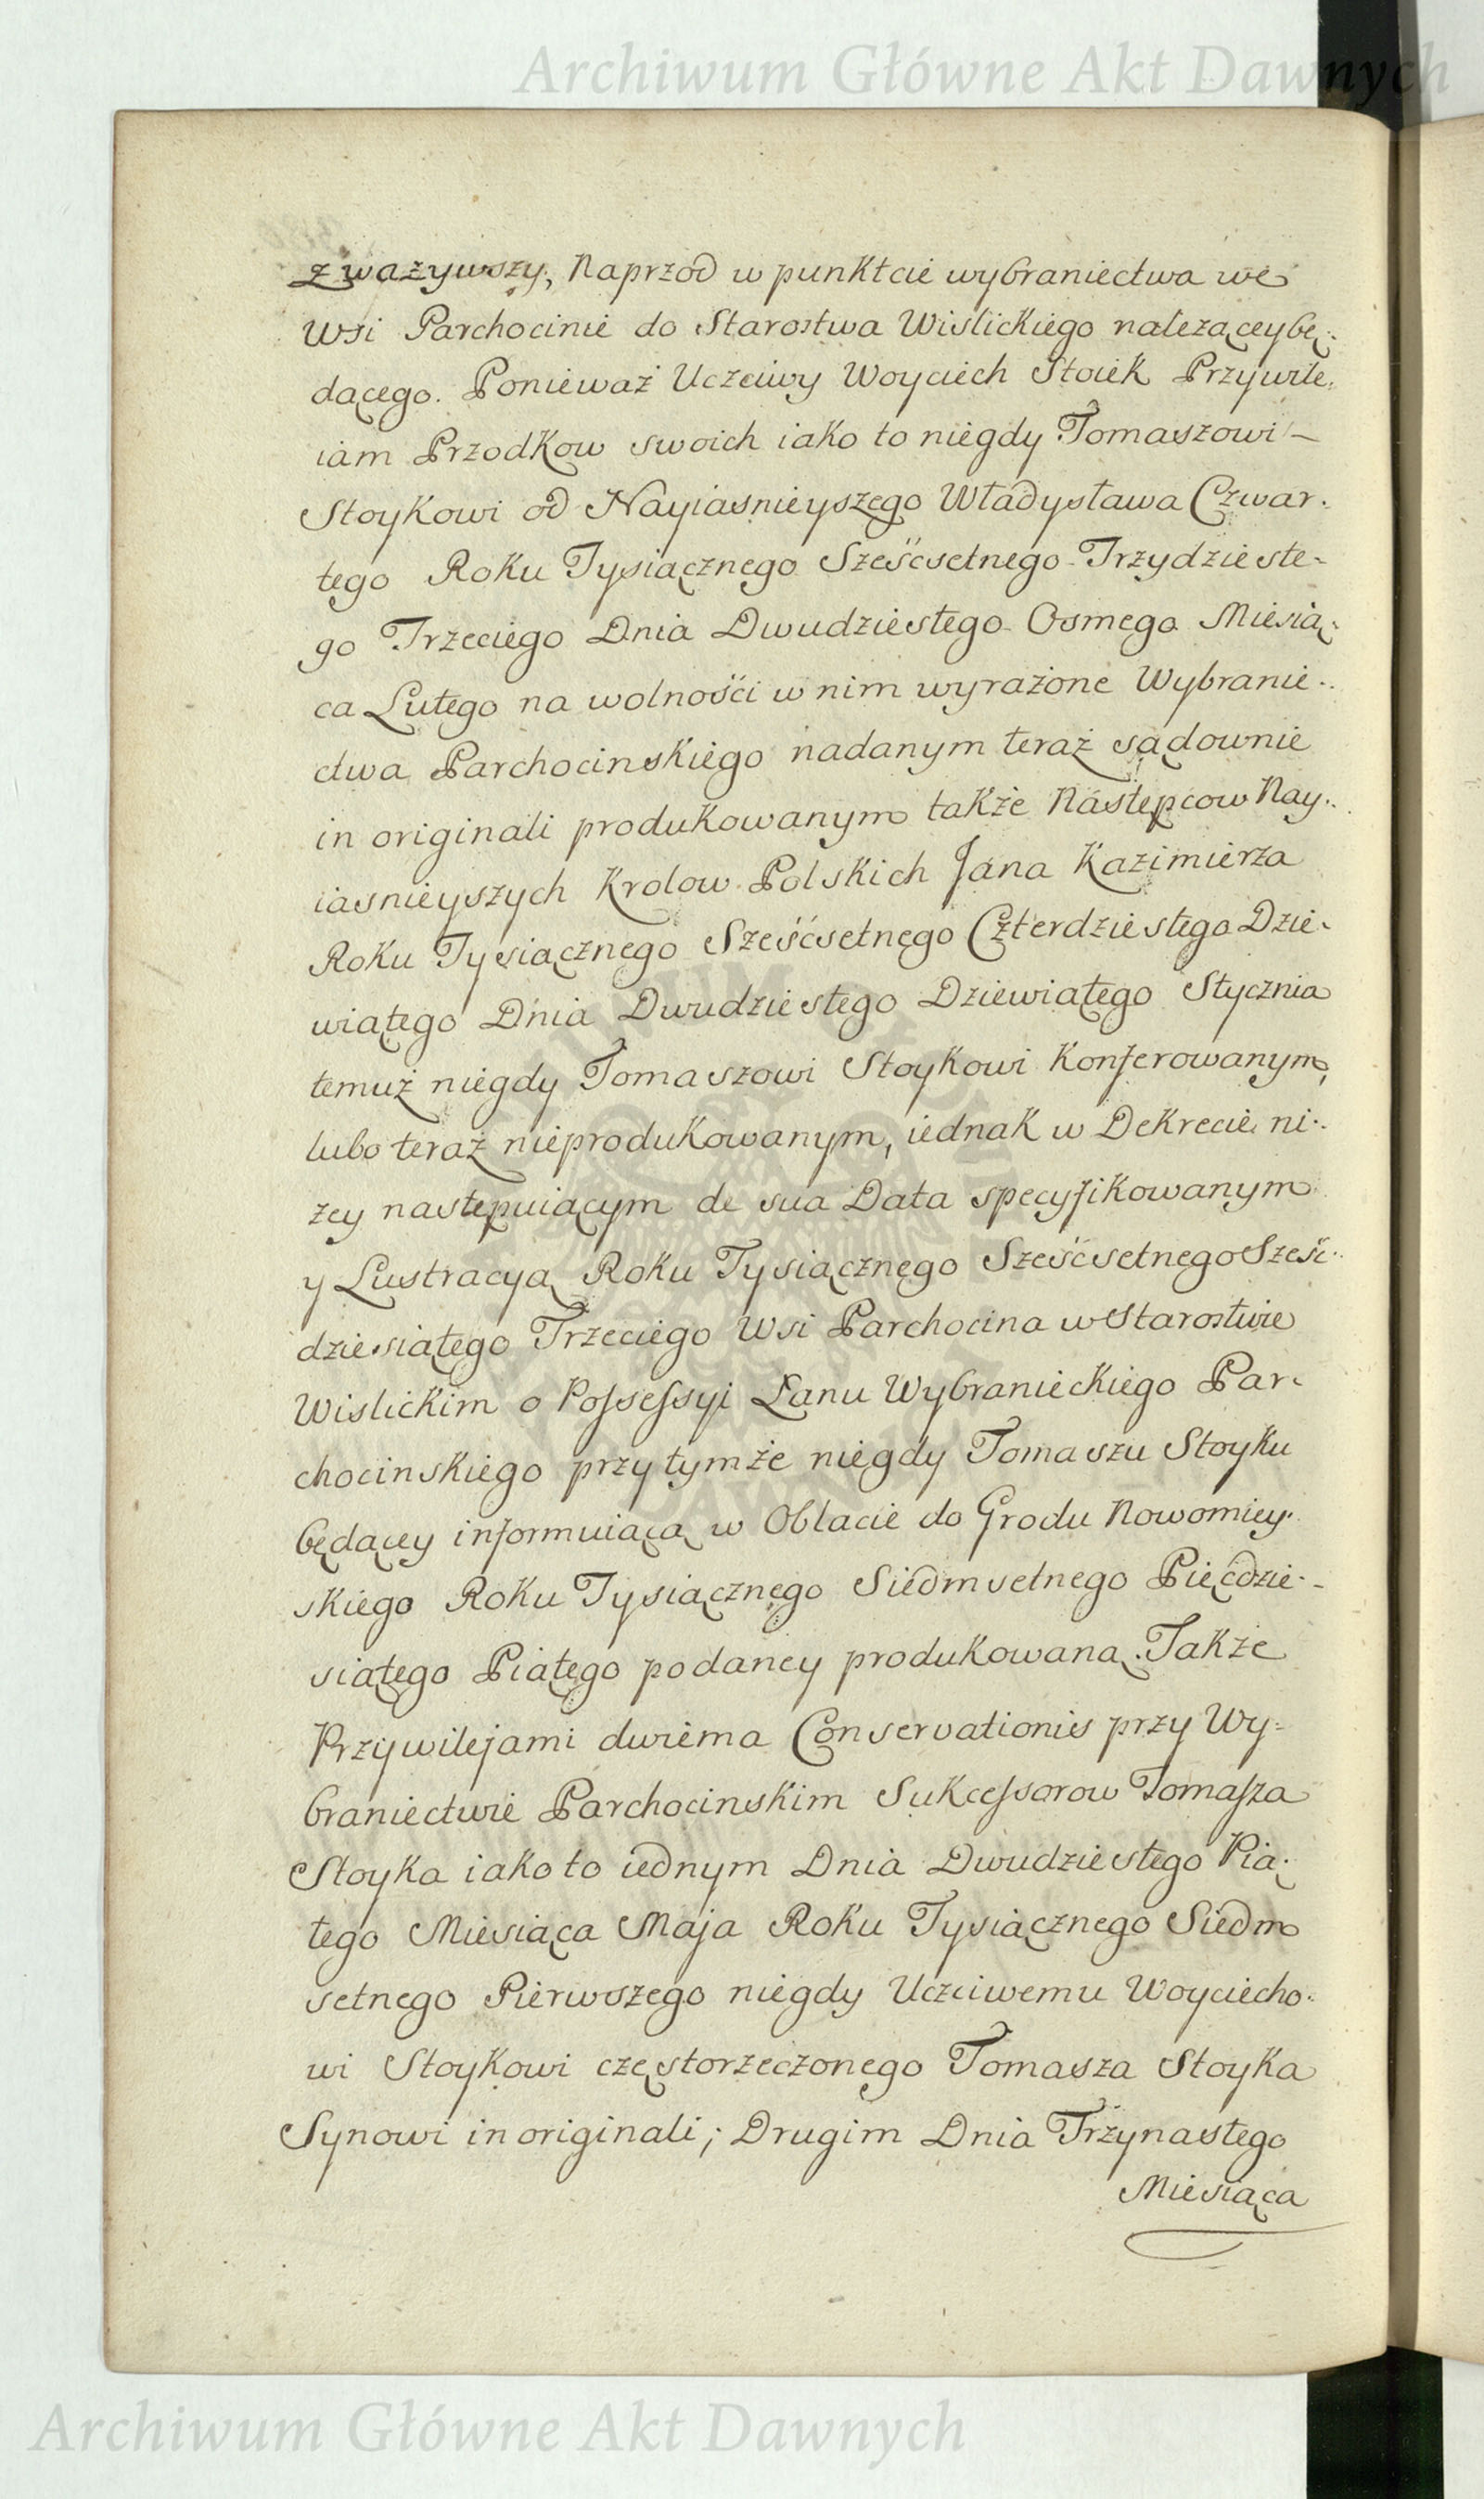 Archiwum Główne Akt Dawnych
zważywszy, Naprzod w punktcie wybraniectwa we
Wsi Parchocinie do Starostwa Wislickiego należącey bę-
dącego. Ponieważ Uczciwy Woyciech Stoiek Przywile-
iam Przodkow swoich iako to niegdy Tomaszowi –
Stoykowi od Nayiasnieyszego Władysława Czwar-
tego Roku Tysiącznego Sześćsetnego Trzydzieste-
go Trzeciego Dnia Dwudziestego Osmego Miesią-
ca Lutego na wolności w nim wyrażone Wybranie-
ctwa Parchocinskiego nadanym teraż sądownie
in originali produkowanym także Następcow Nay-
iasnieyszych Krolow Polskich Jana Kazimierza
Roku Tysiącznego Sześćsetnego Czterdziestego Dzie-
wiątego Dnia Dwudziestego Dziewiątego Stycznia
temuż niegdy Tomaszowi Stoykowi Konferowanym,
lubo teraż nieprodukowanym, iednak w Dekrecie ni-
zey następuiącym de sua Data specyfikowanym
y Lustracyą Roku Tysiącznego Sześćsetnego Sześć-
dziesiątego Trzeciego Wsi Parchocina w Starostwie
Wislickim o Possessyi Łanu Wybranieckiego Par-
chocinskiego przy tymże niegdy Tomaszu Stoyku
będącey informuiącą w Oblacie do Grodu Nowomiey-
skiego Roku Tysiącznego Siedmsetnego Pięćdzie-
siątego Piątego podaney produkowaną. Także
Przywilejami dwiema Conservationis przy Wy=
braniectwie Parchocinskim Sukcessorow Tomasza
Stoyka iako to iednym Dnia Dwudziestego Pią-
tego Miesiąca Maja Roku Tysiącznego Siedm
setnego Pierwszego niegdy Uczciwemu Woyciecho-
wi Stoykowi częstorzeczonego Tomasza Stoyka
Synowi in originali; Drugim Dnia Trzynastego
Miesiąca
Archiwum Główne Akt Dawnych